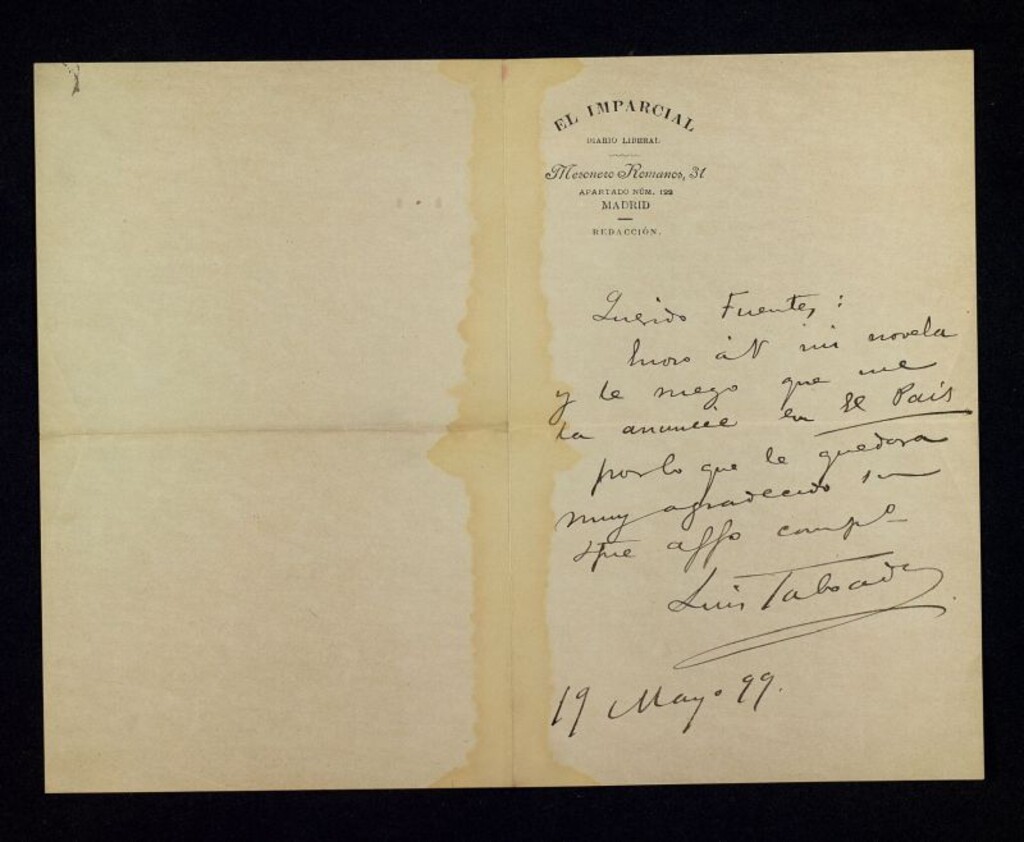 EL IMPARCIAL
DIARIO LIBERAL
Mesonero Romanos, 31
APARTADO NÚM. 122
MADRID
REDACCIÓN.
Querido Fuentes:
mi novela
y le ruego que me
la anuncie en El País
por lo que le quedara
muy agradecido su
affo compº
Luis Taboada
19 Mayo 99.